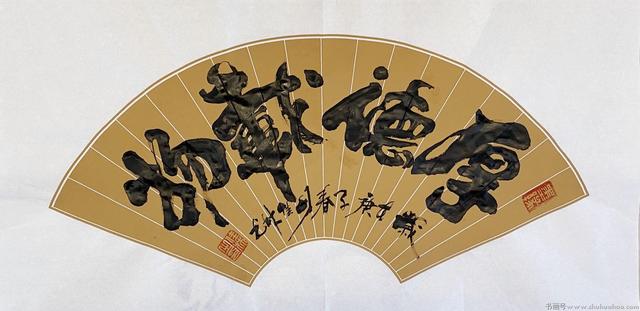 厚德載物
歲在庚子春月
书画号www.shuhuahao.com